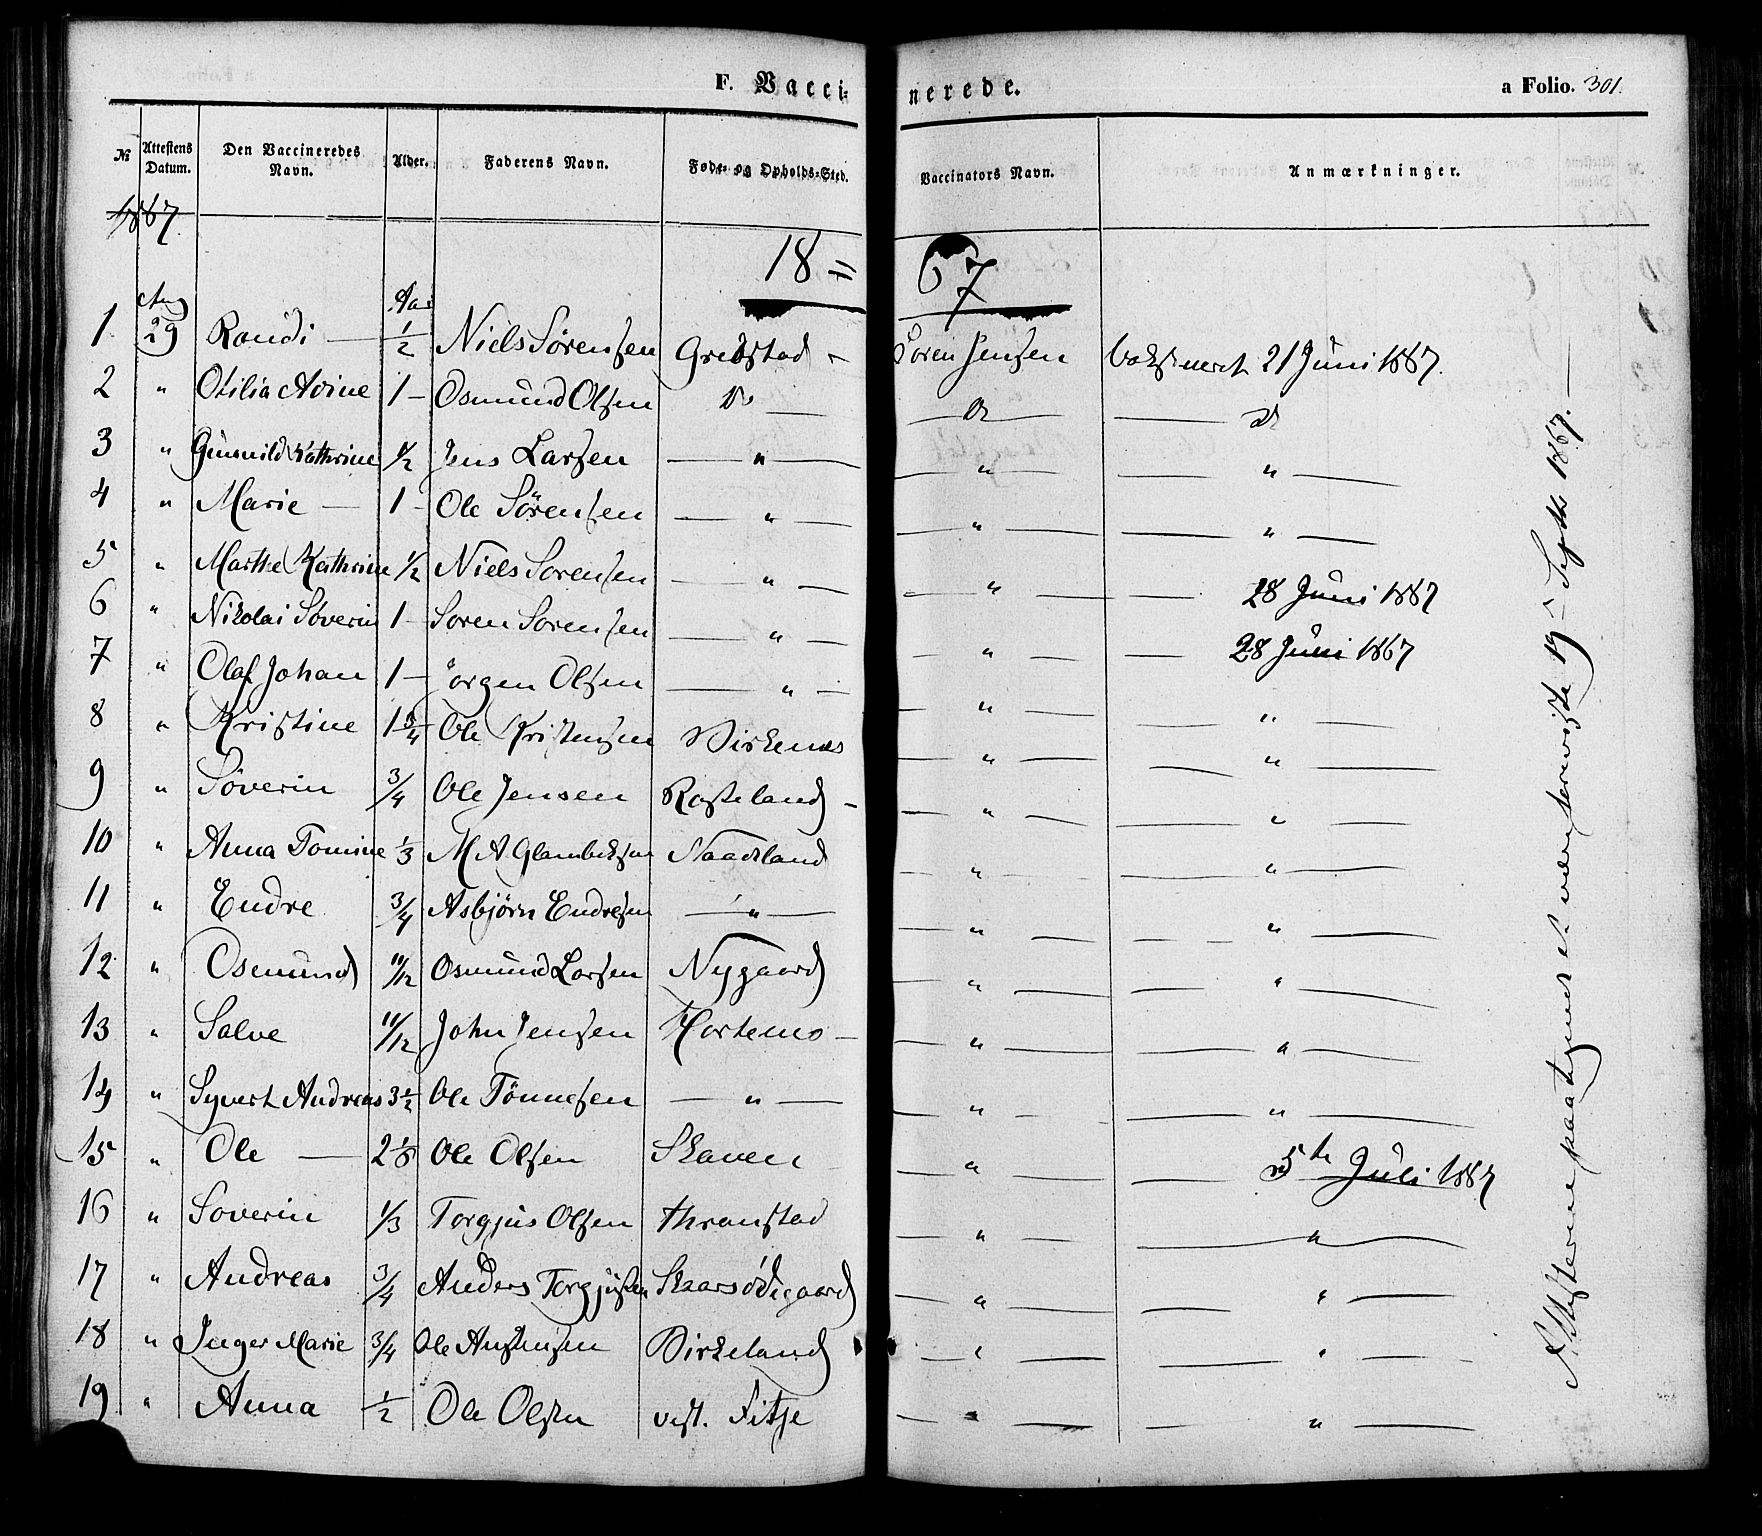 F. Vaccinerede. a Folio. 301.
№ Attestens Datum. Den Vaccineredes Navn. Alder. Faderens Navn. Føde- og Opholds-Sted. Vaccinators Navn. Anmærkninger.
1867.
18 = 67
Aug Aar
1. 29 Randi — 1/2 Niels Sørensen Grebstad - Soren Jensen Vaksineret 21 Juni 1867.
2 " Otilia Avine 1 — Osmund Olsen Do — Do — — Do
3 " Gunnild Kathrine 1/2 Jens Larsen — " — — " — — " —
4 " Marie — 1 - Ole Sørensen — " — — " — — " —
5 " Marthe Kathrine 1/2 Niels Sorensen — " — — " — — 28 Juni 1867
6 " Nikolai Søverin 1 — Soren Sorensen — " — " — — 28 Juni 1867
7 " Olaf Johan 1 — Jørgen Olsen — " — — " — — " —
8 " Kristine 1 3/4 Ole Kristensen Birkenes — " — — " —
9 " Søverin 3/4 Ole Jensen Rosseland - — " — — " —
10 " Anna Tomine 1/3 M A Naadeland — " — — " —
11 " Endre 3/4 Asbjørn Endresen — " — — " — — " —
12 " Osmund 11/12 Osmund Larsen Nygaard — " — — " —
13 " Salve 11/12 John Jensen Hortemo — — " — — " —
14 " Syvert Andreas 3 1/2 Ole Tønnesen — " — — " — — " —
15 " Ole — 2 Ole Olsen Skaven — " — — 5te Juli 1867
16 " Soverin 1/3 Torgjus Olsen Thranstad — " — — " —
17 " Andreas 3/4 Anders Torgjusen Skarsødegaard — " — — " —
18 " Inger Marie 3/4 Ole Austensen Birkeland — " — — " —
19 " Anna 1/2 Ole Olsen vest. Fitje — " — — " —
Attesterne paategnet 19 Septbr 1867. —